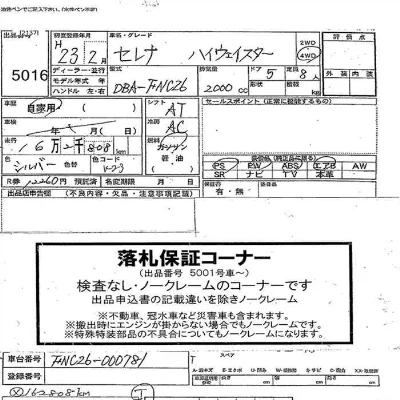 出品番号 [2137]
初度登録年月 車名・グレード 評価点
H 23年2月 セレナ ハイウェイスター 2WD 4WD
5016
ディーラー・並行 型式 排気量 ドア 定員 外装 内装
モデル年式 年式 DBA-FNC26 2000 cc 5 8人
ハンドル 左・右 形状 積載 kg
車歴 自家用 シフト AT セールスポイント(正常に機能するもの)
車検 年 月(日) 冷房 AC
走行 16万2千808 km 燃料 ガソリン 軽油
色 シルバー 色替 色カラーNo K-23
装備品(純正品に限る)
PS PW ABS エアB AW
SR ナビ TV 本革
R券 12260円 預託済 名変期限 月 日 保証書 有・無 NOx
出品店申告欄 (不良内容・欠品・注意事項記載)
落札保証コーナー
(出品番号 5001号車~)
検査なし・ノークレームのコーナーです
出品申込書の記載違いを除きノークレーム
※不動車、冠水車など災害車も含まれます。
※搬出時にエンジンが掛からない場合でもノークレームです。
※特殊特装部品の不具合についてもノークレームになります。
車台番号 FNC26-000781 T スペア
登録番号
162808km